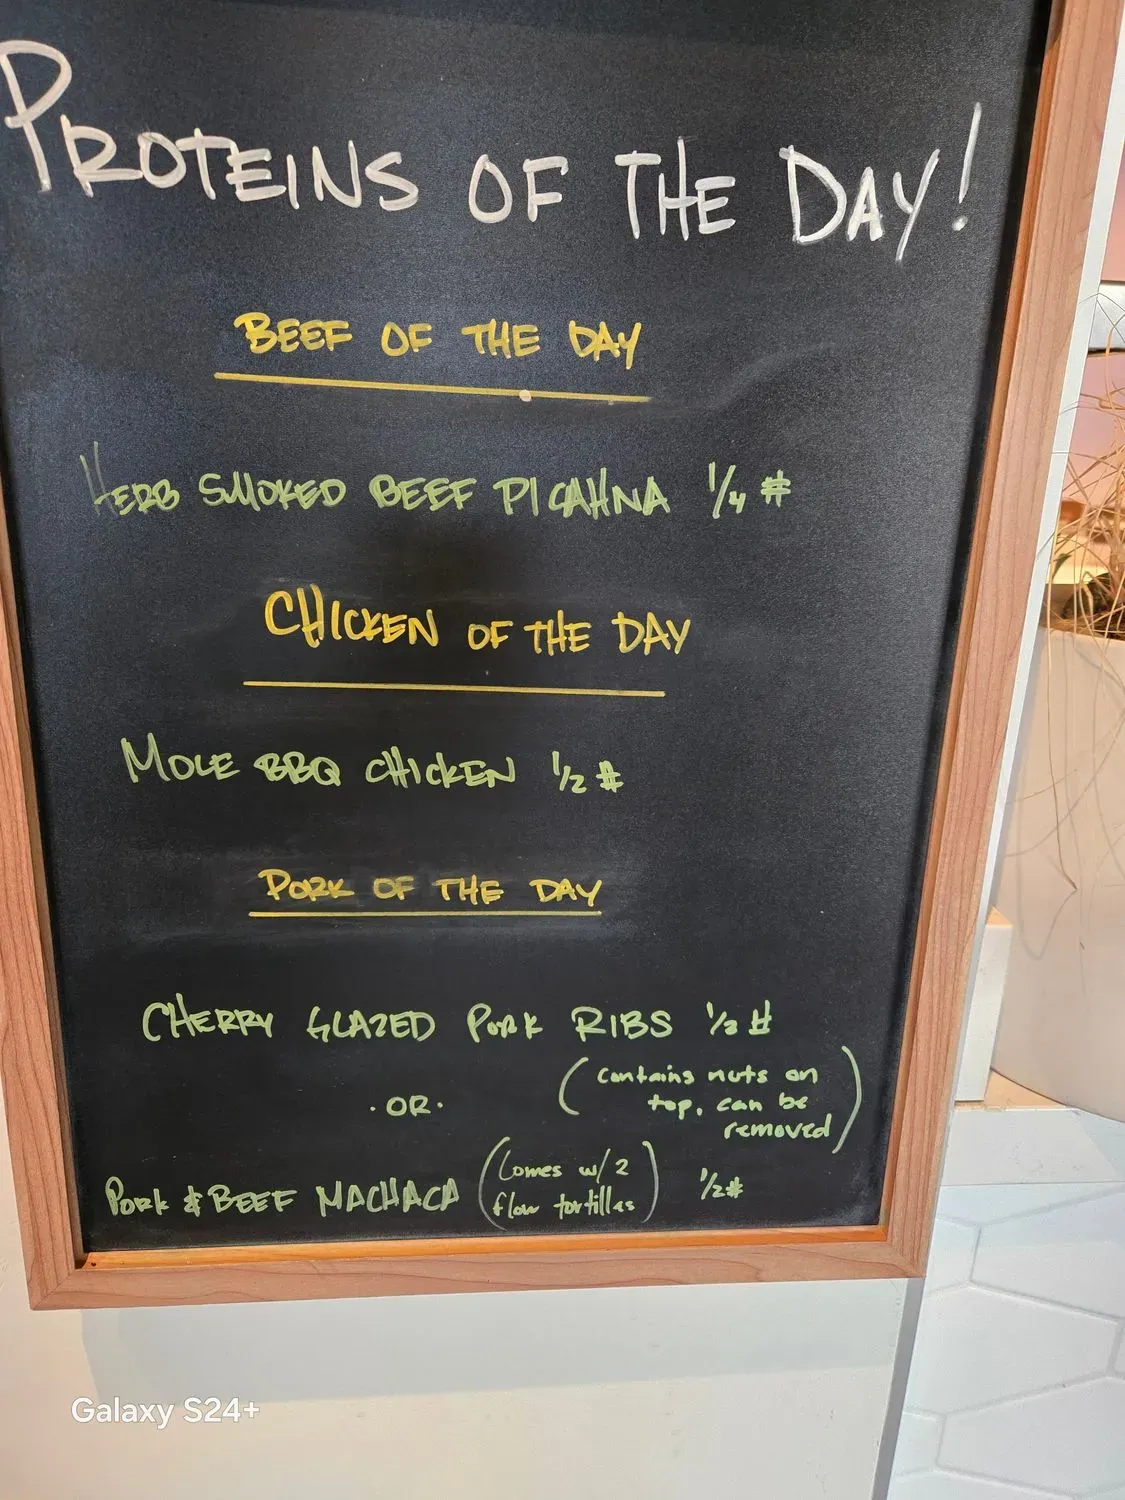 PROTEINS OF THE DAY!
BEEF OF THE DAY
HERB SMOKED BEEF PICAHNA 1/4 #
CHICKEN OF THE DAY
MOLE BBQ CHICKEN 1/2 #
PORK OF THE DAY
CHERRY GLAZED PORK RIBS 1/2 #
(contains nuts on
top, can be
removed)
·OR·
PORK & BEEF MACHACA (Comes w/ 2
flour tortillas) 1/2#
Galaxy S24+